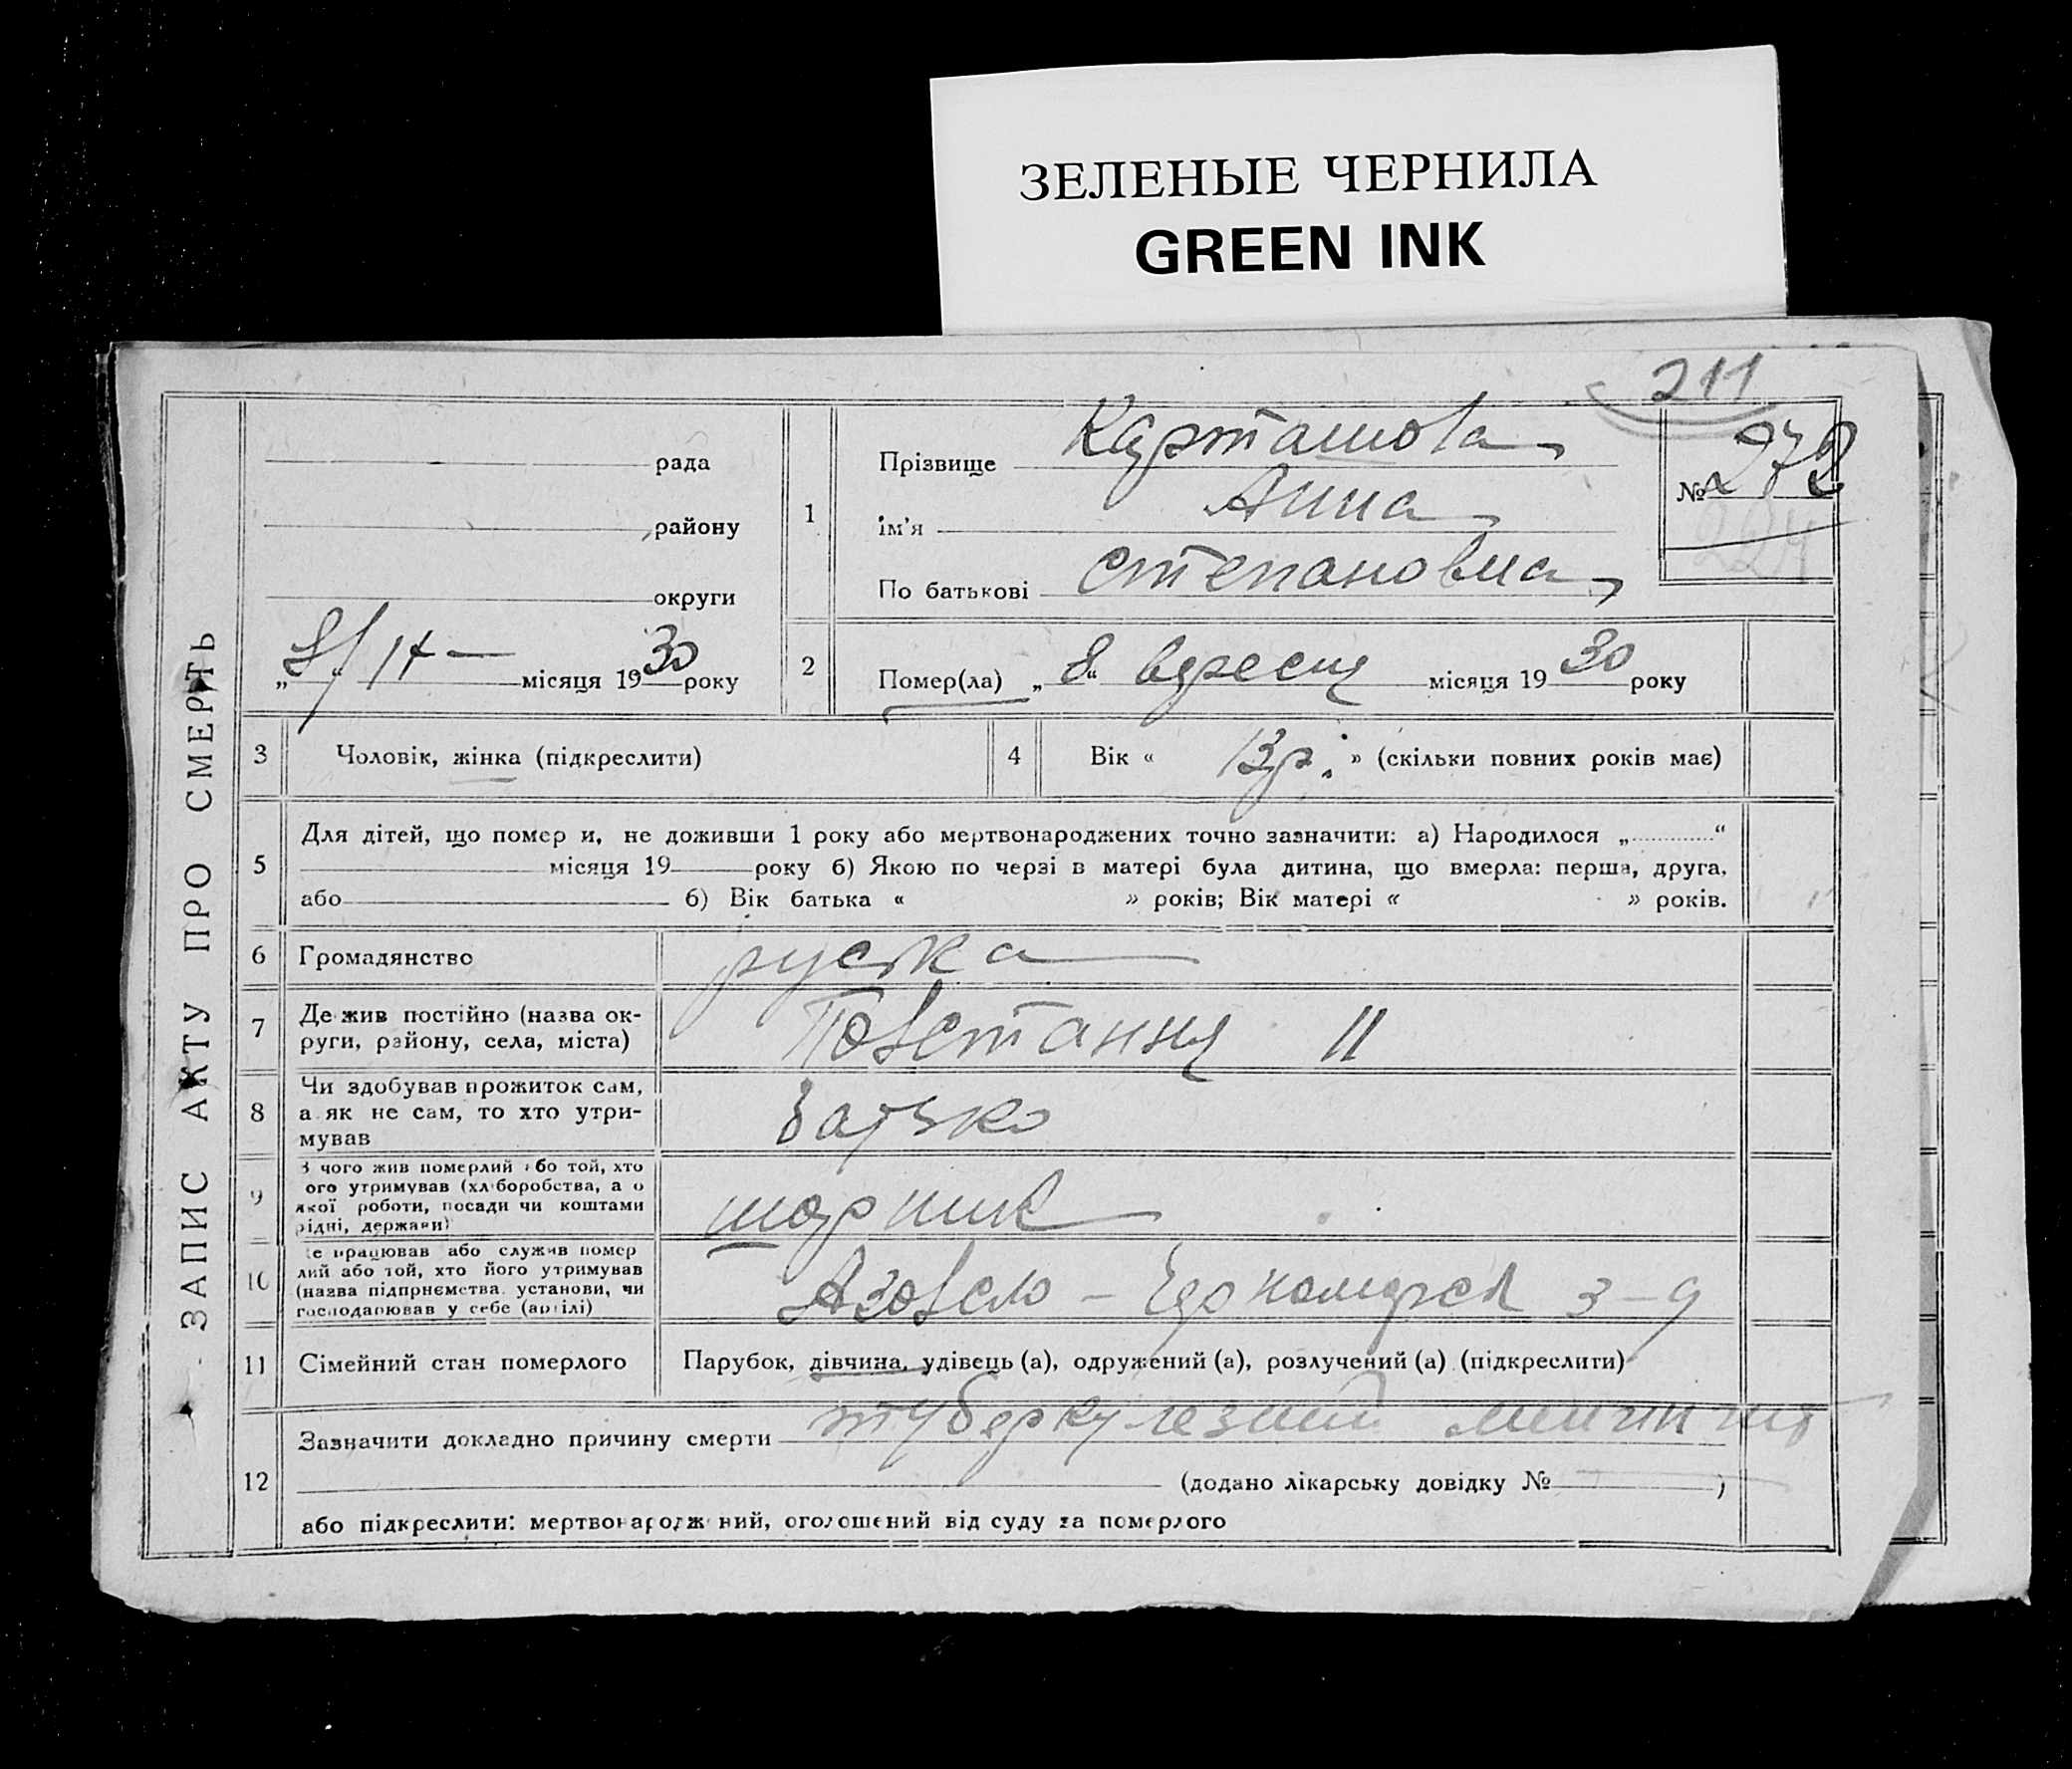 ЗЕЛЕНЫЕ ЧЕРНИЛА
GREEN INK
211
ЗАПИС АКТУ ПРО СМЕРТЬ
рада
району
округи
місяця 1930 року
1
Прізвище Карташова
ім'я Анна
По батькові Степановна
№ 272
224
2
Помер(ла) „8“ вересня місяця 1930 року
3
Чоловік, жінка (підкреслити)
4
Вік « 13 р. » (скільки повних років має)
5
Для дітей, що помер и, не доживши 1 року або мертвонароджених точно зазначити: а) Народилося „ “
місяця 19 року б) Якою по черзі в матері була дитина, що вмерла: перша, друга,
або б) Вік батька « » років; Вік матері « » років.
6
Громадянство
руска
7
Де жив постійно (назва ок-
руги, району, села, міста)
Повстання 11
8
Чи здобував прожиток сам,
а як не сам, то хто утри-
мував
батько
9
З чого жив померлий або той, хто
ого утримував (хліборобства, а о
якої роботи, посади чи коштами
рідні, держави)
шорник
10
е працював або служив помер
лий або той, хто його утримував
(назва підпрнємства, установи, чи
господарював у себе (артілі)
3-д
11
Сімейний стан померлого
Парубок, дівчина, удівець (а), одружений (а), розлучений (а) (підкреслити)
12
Зазначити докладно причину смерти туберкулезний менингит
(додано лікарську довідку № )
або підкреслити: мертвонародж ний, оголошений від суду за померлого